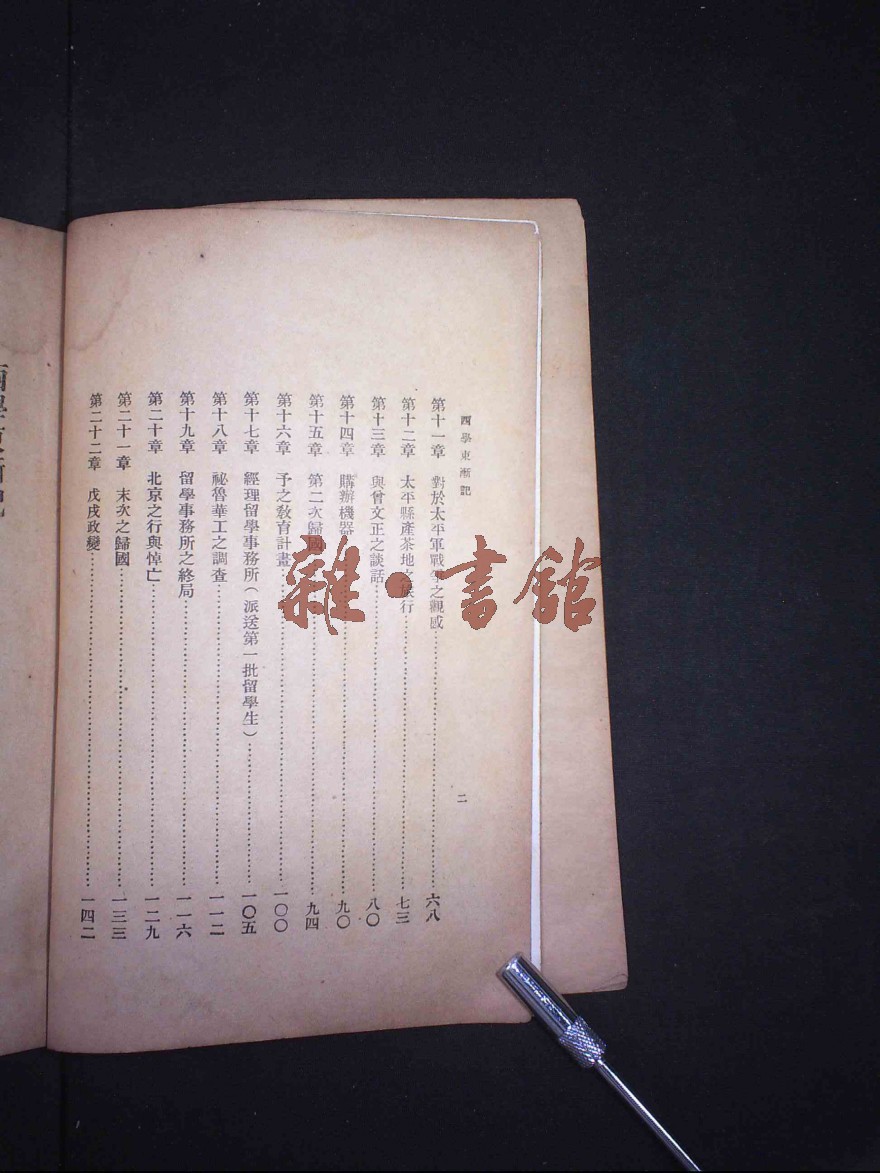 西學東漸記
二
第十一章　對於太平軍戰爭之觀感……六八
第十二章　太平縣產茶地之旅行……七三
第十三章　與曾文正之談話……八〇
第十四章　購辦機器……九〇
第十五章　第二次歸國……九四
第十六章　予之教育計畫……一〇〇
第十七章　經理留學事務所（派送第一批留學生）……一〇五
第十八章　祕魯華工之調查……一一二
第十九章　留學事務所之終局……一一六
第二十章　北京之行與悼亡……一二九
第二十一章　末次之歸國……一三三
第二十二章　戊戌政變……一四二
雜·書館